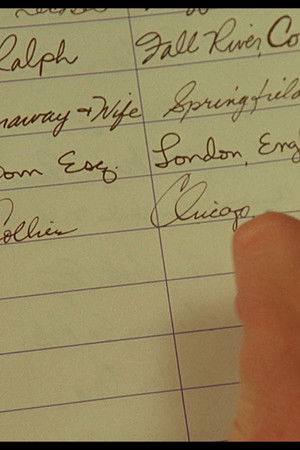 Ralph Fall River, Co
naway + Wife Springfield
Esq. London, Eng
Collier Chicago